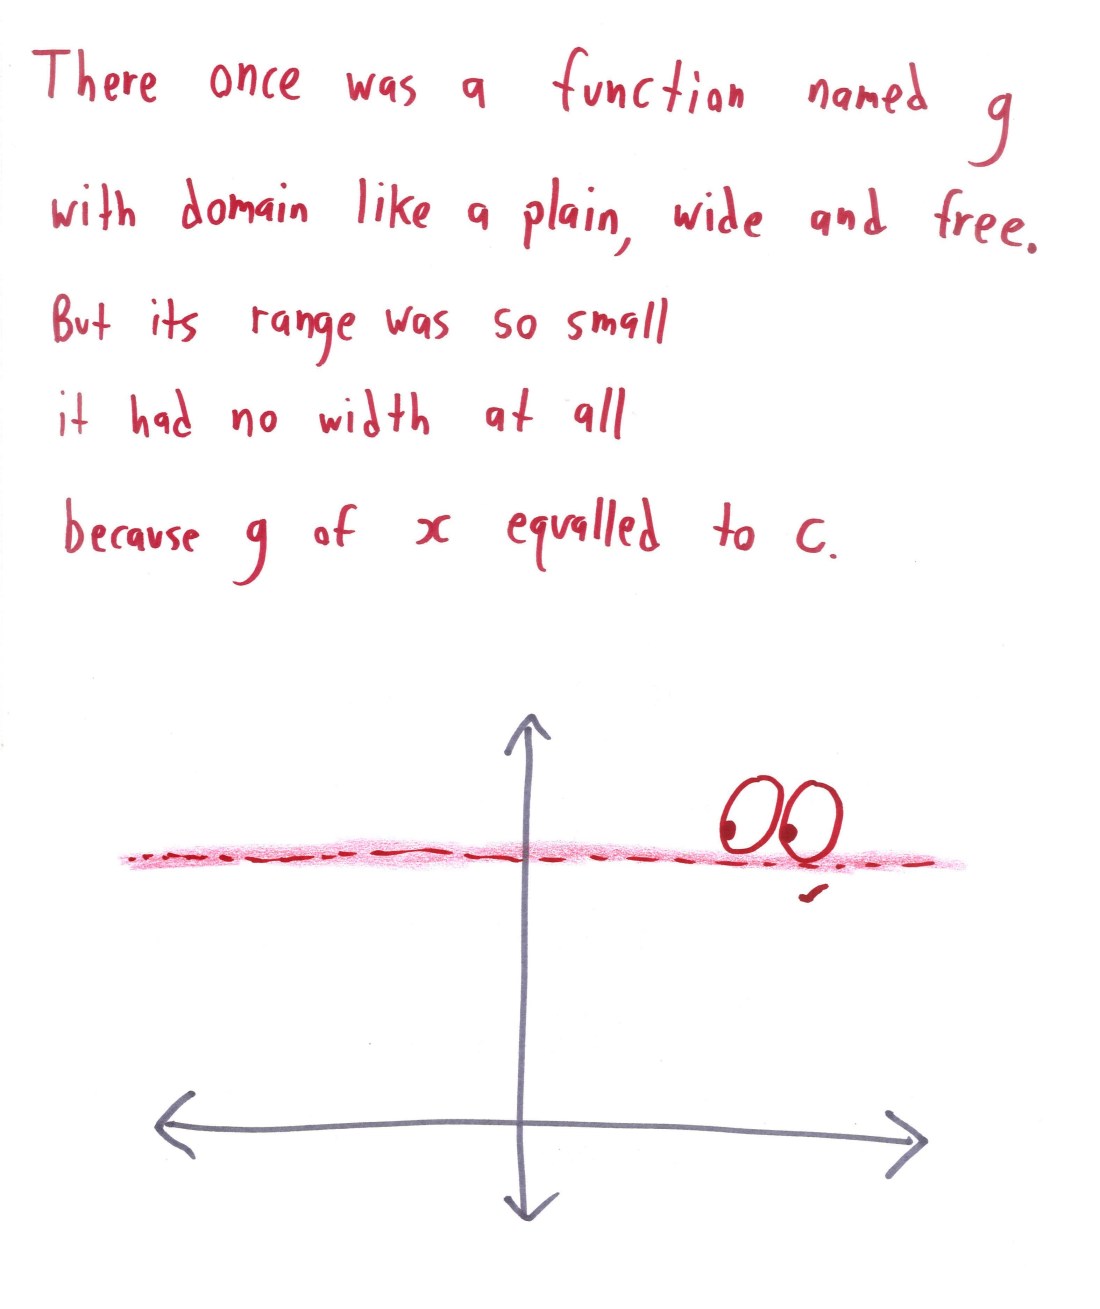 There once was a function named g
with domain like a plain, wide and free.
But its range was so small
it had no width at all
because g of x equalled to c.